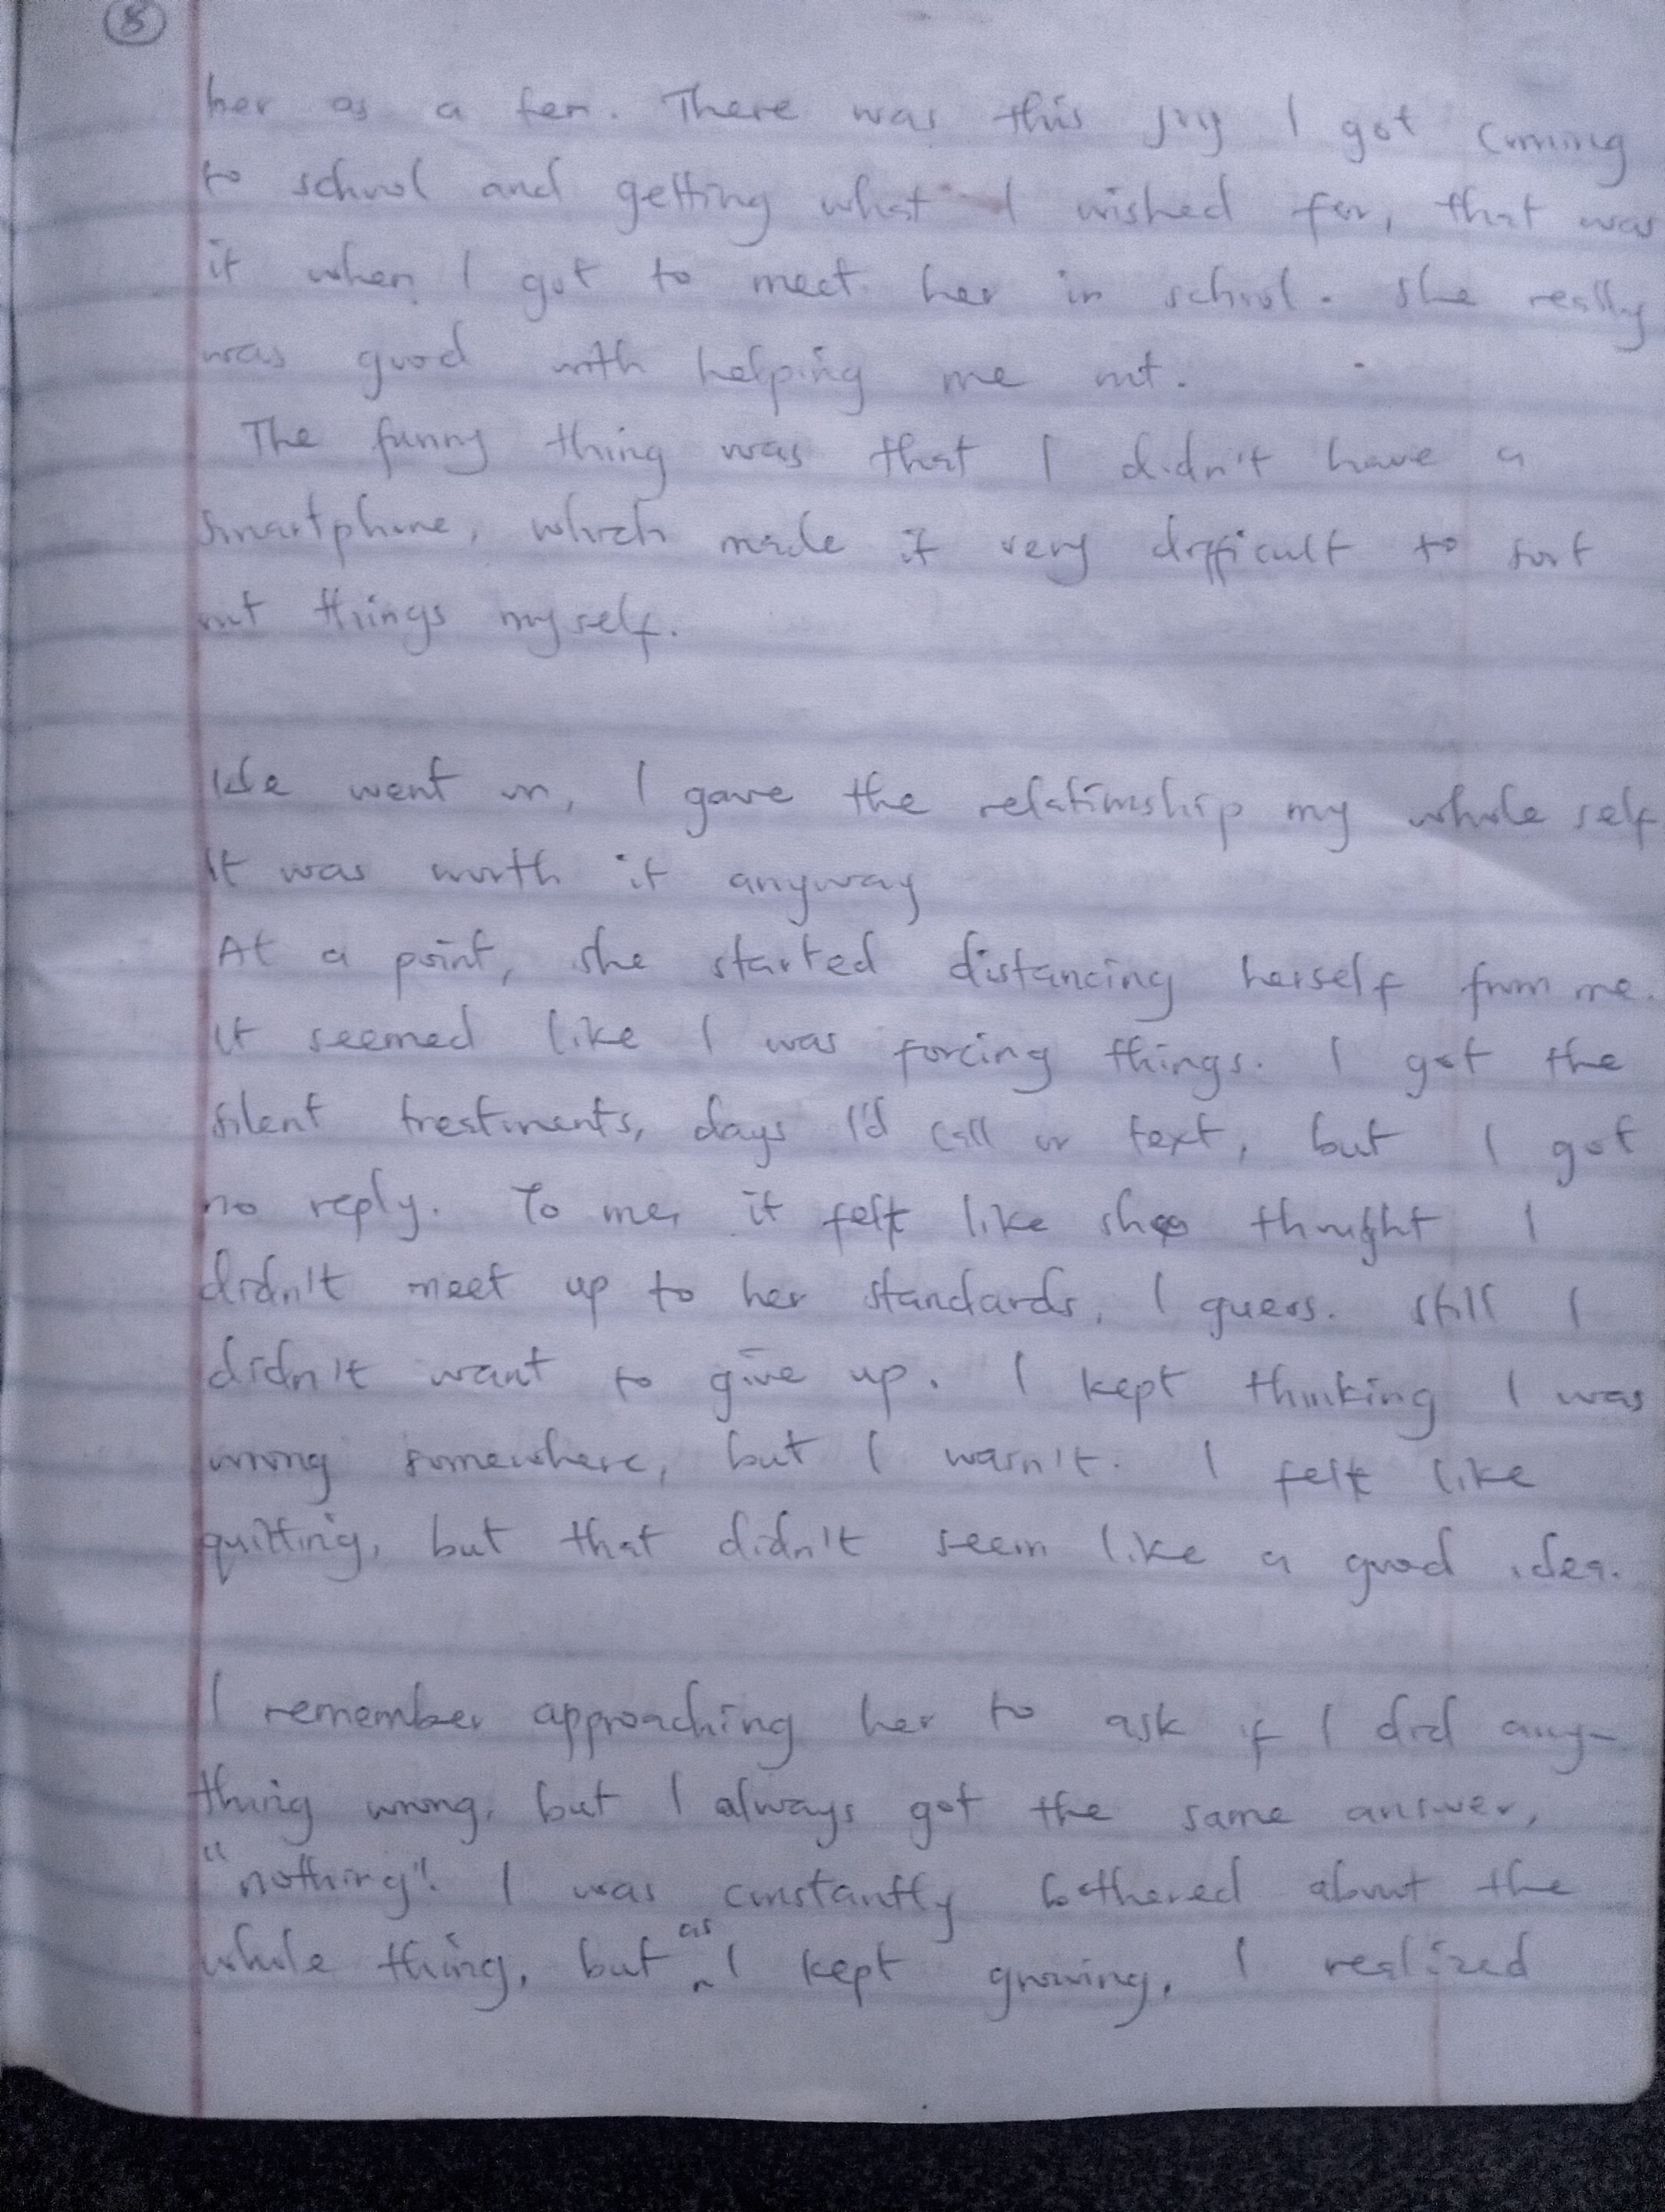 8
her as a fen. There was this joy I got coming
to school and getting what I wished for, that was
it when I got to meet her in school. She really
was good with helping me out.
The funny thing was that I didn't have a
smartphone, which made it very difficult to sort
out things myself.
We went on, I gave the relationship my whole self
It was worth it anyway
At a point, she started distancing herself from me.
It seemed like I was forcing things. I got the
silent treatments, days I'd call or text, but I got
no reply. To me, it felt like she thought I
didn't meet up to her standards, I guess. Still I
didn't want to give up. I kept thinking I was
wrong somewhere, but I wasn't. I felt like
quitting, but that didn't seem like a good idea.
I remember approaching her to ask if I did any-
thing wrong, but I always got the same answer,
"nothing". I was constantly bothered about the
whole thing, but as I kept growing, I realized